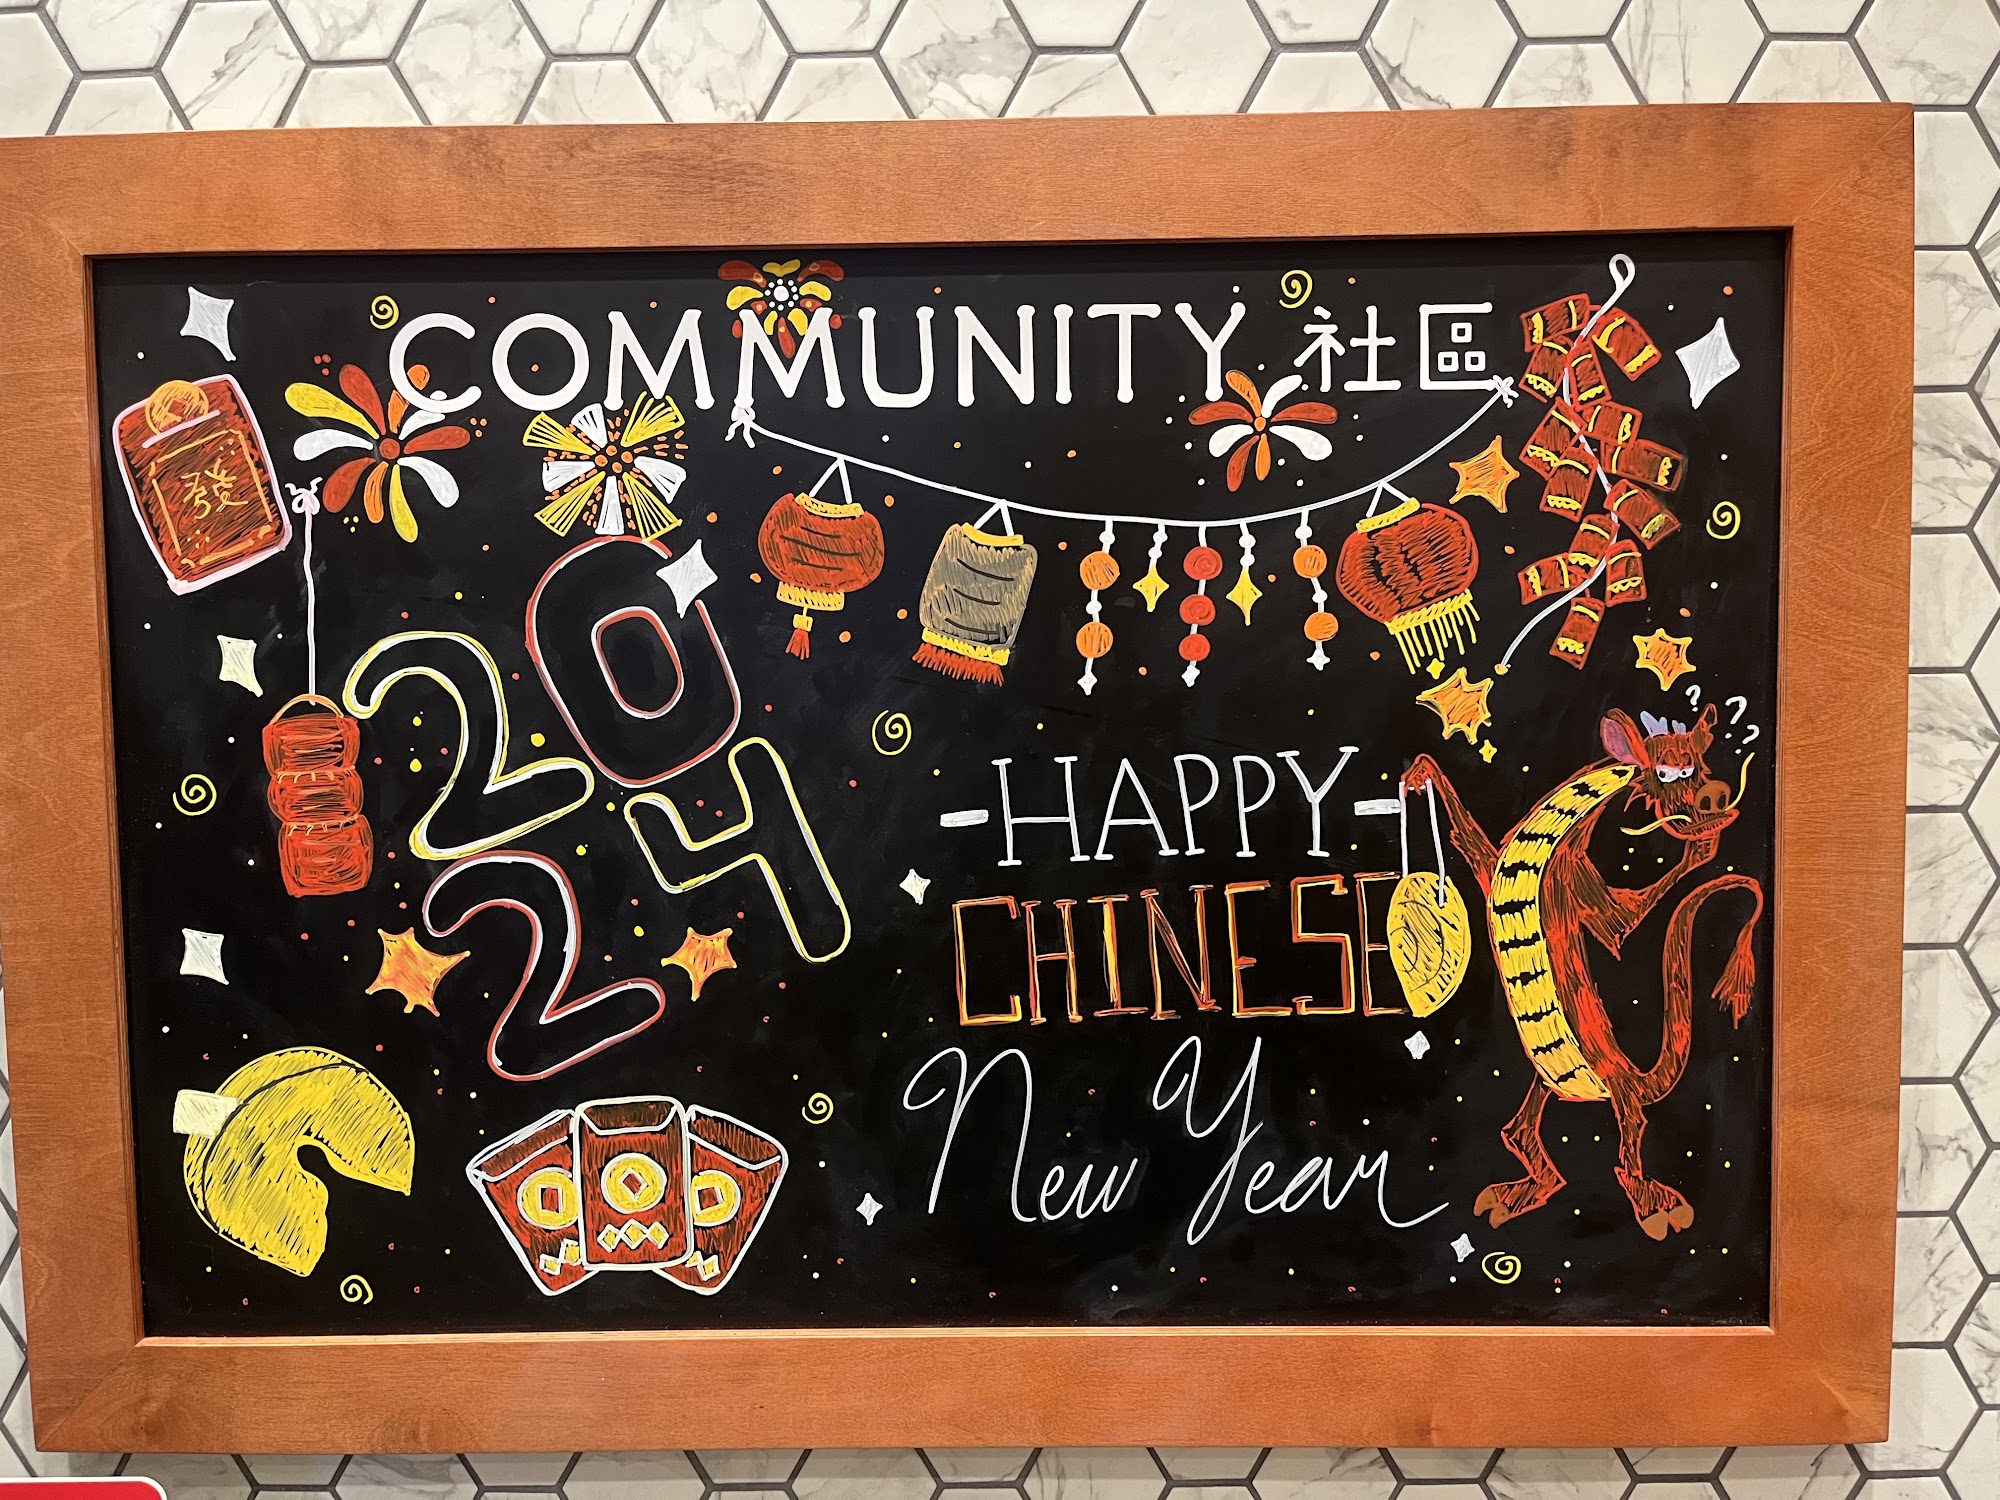 COMMUNITY 社區
發
2024
2
-HAPPY-
CHINESE
New Year
? ? ?